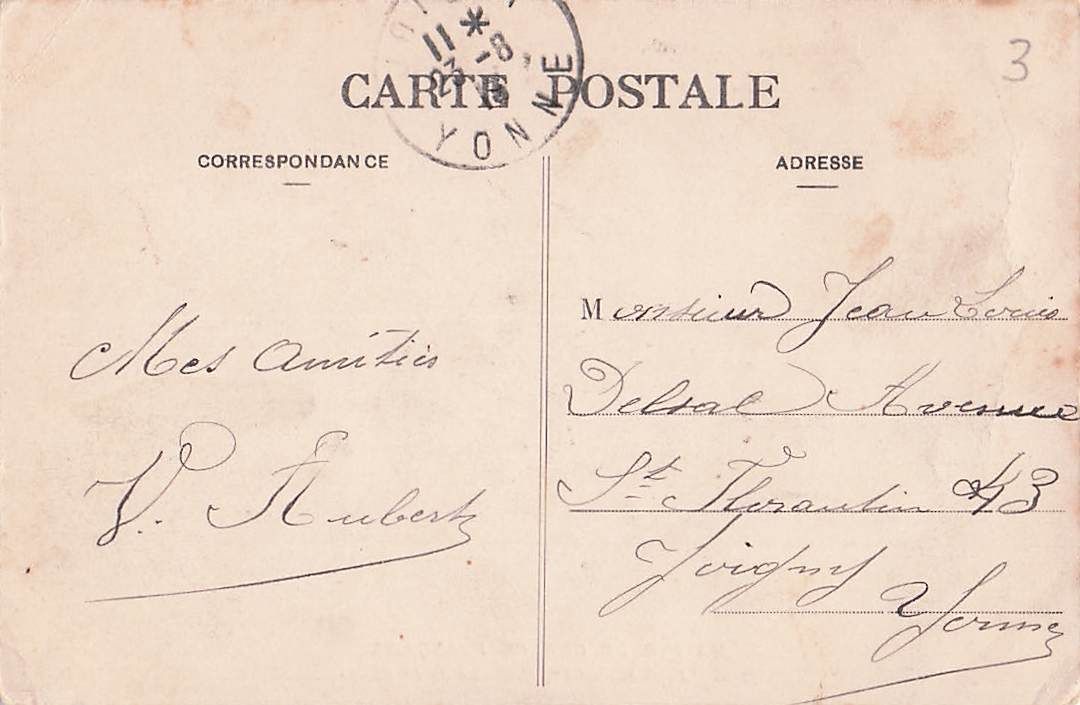 3
11 *
23 -8
YONNE
CARTE POSTALE
CORRESPONDANCE
ADRESSE
Mes amitiés
V. Aubert
Monsieur Jean Louis
Delsal Avenue
St Florantin 43
Joigny
Yonne